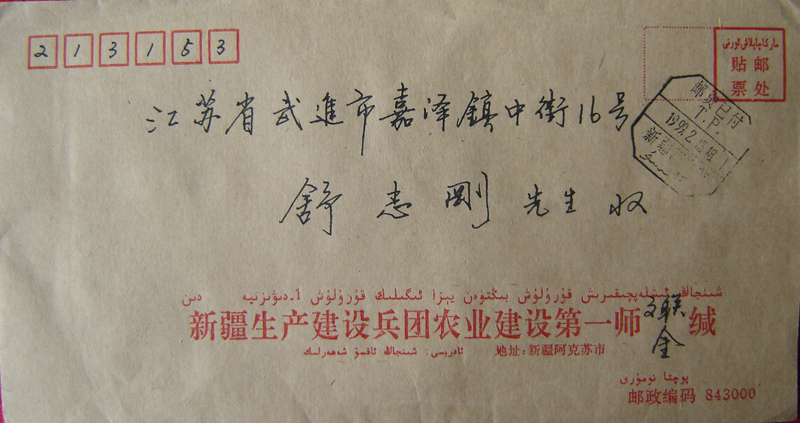 213153
ماركا چاپلاش ئورنى
贴邮
票处
邮资已付
T.P.
新疆
江苏省武進市嘉泽镇中街16号
舒志刚先生收
شىنجاڭ ئىشلەپچىقىرىش قۇرۇلۇش بىڭتۇەن يېزا ئىگىلىك قۇرۇلۇش 1-دىۋىزىيە دىن
新疆生产建设兵团农业建设第一师 文联 缄
金
ئادرېسى: شىنجاڭ ئاقسۇ شەھەرلىك 地址:新疆阿克苏市
پوچتا نومۇرى
邮政编码 843000